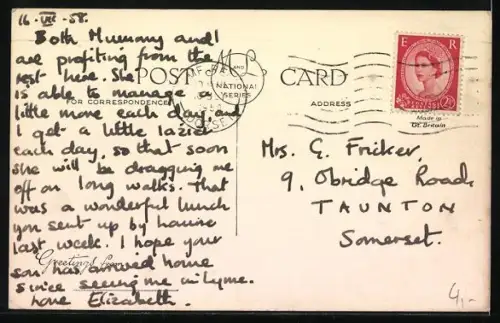 16 · VII · 58.
Both Mummy and I
are profiting from the
rest here. She
is able to manage a
little more each day, and
I get a little lazier
each day, so that soon
she will be dragging me
off on long walks. That
was a wonderful lunch
you sent up by
last week. I hope your
son has arrived home
since seeing me in Lyme.
love Elizabeth.
POST CARD
FOR CORRESPONDENCE
NATIONAL SERIES
Greetings from
ADDRESS
E R
2½
Made in
Gt. Britain
Mrs. G. Fricker,
9, Obridge Road,
TAUNTON
Somerset.
4,-